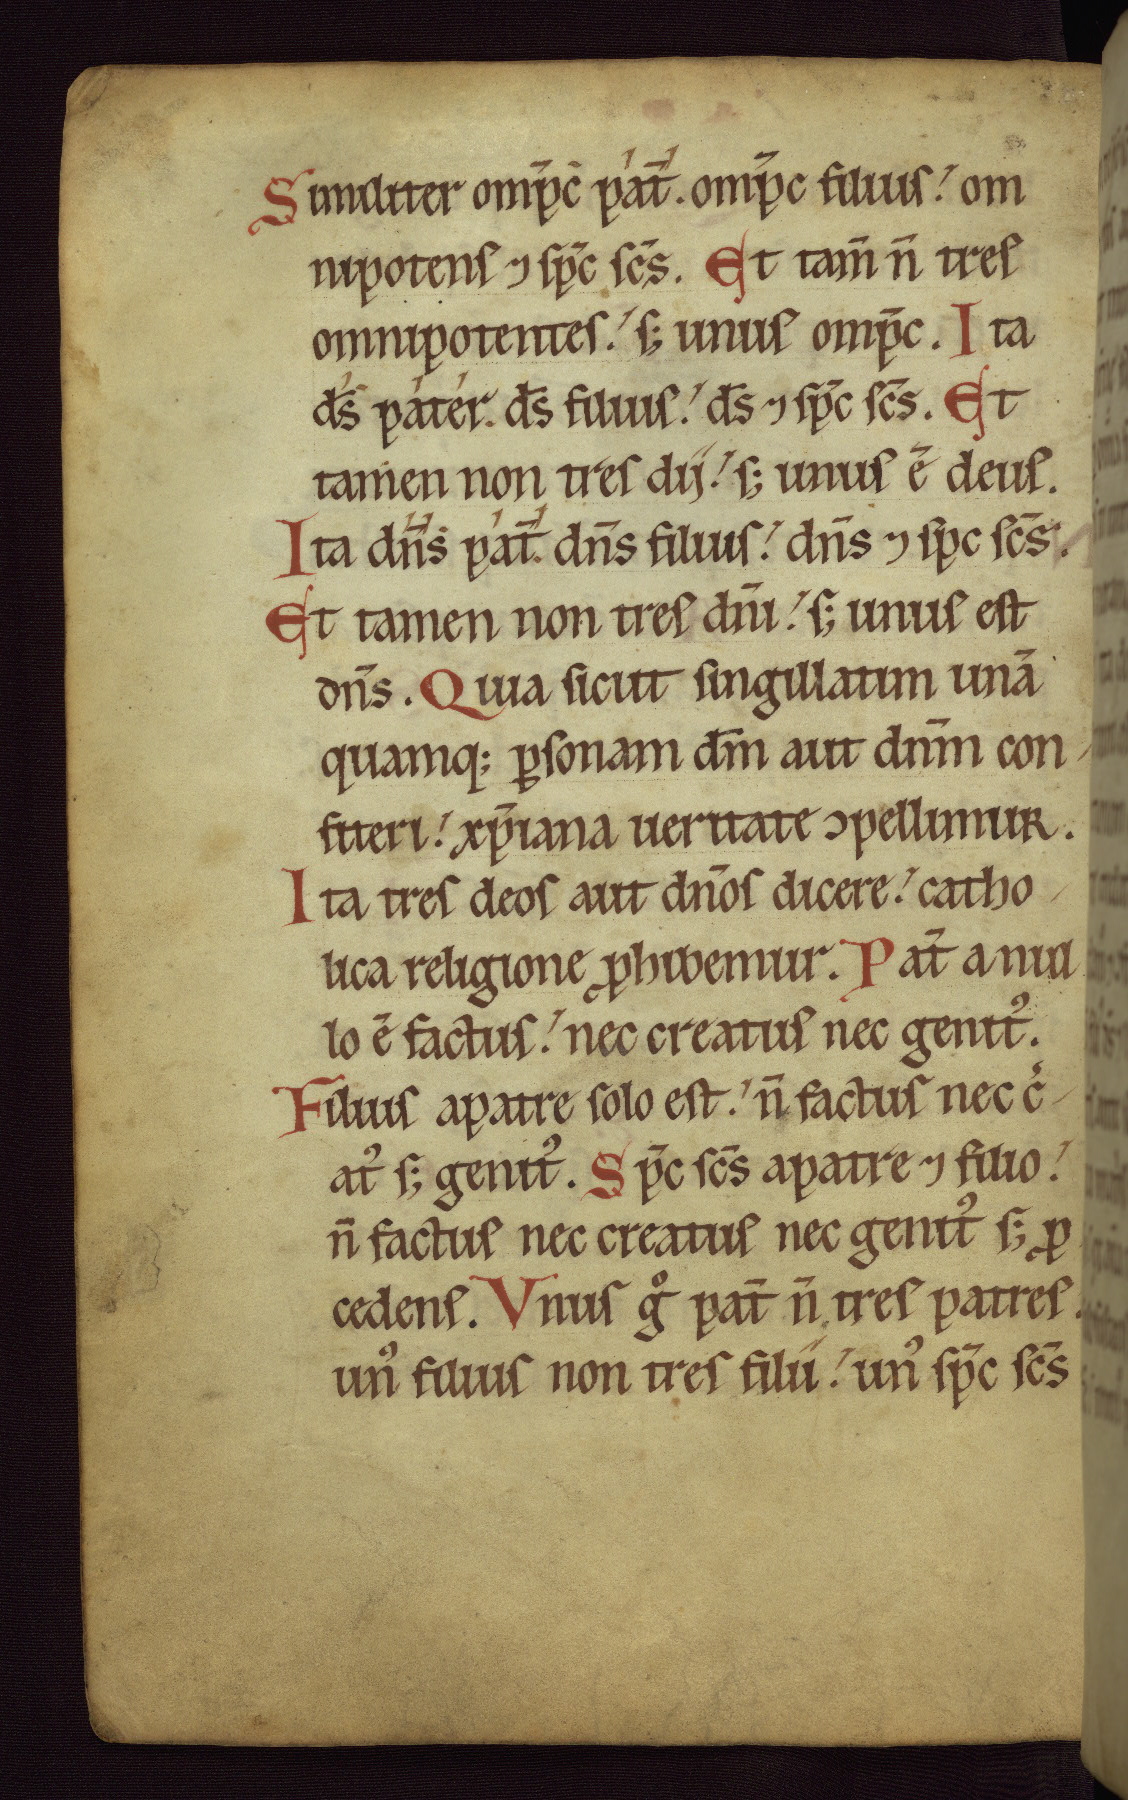 Similiter omp̄c pat̄. omp̄c filius! om
nipotens ⁊ sp̄c sc̄s. Et tam̄ n̄ tres
omnipotentes! s; unus omp̄c. Ita
ds̄ pater. ds̄ filius! ds̄ ⁊ sp̄c sc̄s. Et
tamen non tres dij! s; unus ē deus.
Ita dn̄s pat̄. dn̄s filius! dn̄s ⁊ sp̄c sc̄s.
Et tamen non tres dn̄i! s; unus est
dn̄s. Quia sicut singillatim unā
quamq; ꝑsonam dm̄ aut dnm̄ con
fiteri! xp̄iana ueritate ↄpellimur.
Ita tres deos aut dn̄os dicere! catho
lica religione ꝓhibemur. Pat̄ a nul
lo ē factus! nec creatus nec genitꝰ.
Filius a patre solo est! n̄ factus nec c̓
atꝰ s; genitꝰ. Sp̄c sc̄s a patre ⁊ filio!
n̄ factus nec creatus nec genitꝰ s; ꝓ
cedens. Vnus gͦ pat̄ n̄ tres patres.
unꝰ filius non tres filii! unꝰ sp̄c sc̄s